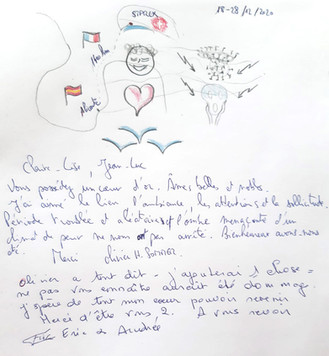 18-28/02/2020
Alicante
Claire-Lise, Jean-Luc
Vous possédez un cœur d'or. Âmes belles et nobles.
J'ai aimé le lien, l'ambiance, les attentions et la sollicitude.
Période troublée et aléatoire, l'ombre menaçante d'un
climat de peur ne nous ont pas arrêté. Bienheureux avons-nous
été. Merci Olivier H.
Olivier a tout dit - j'ajouterai 1 chose =
ne pas vous connaître aurait été dommage.
J'espère de tout mon cœur pouvoir revenir
Merci d'être vous 2. A vous revoir
Eric